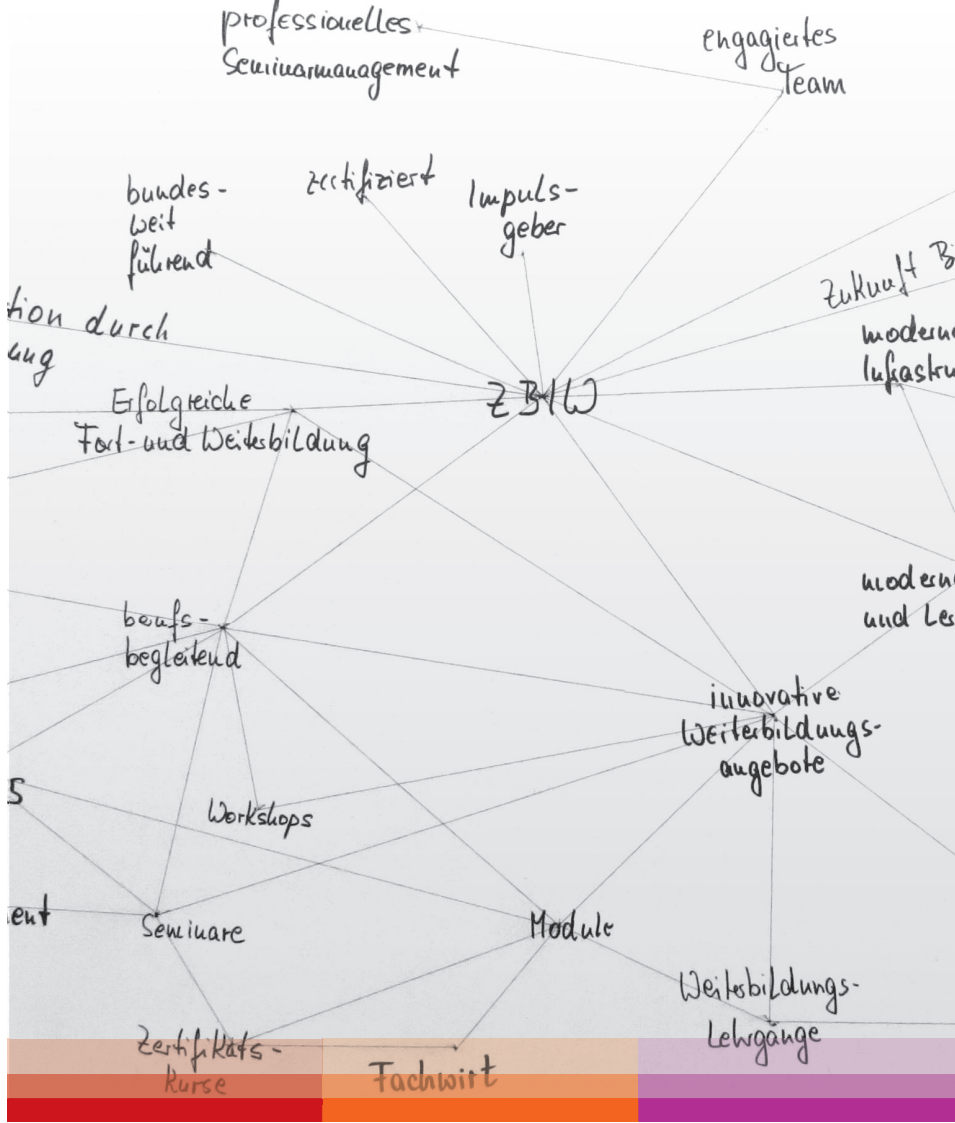 professionelles
Seminarmanagement
engagiertes
Team
bundes-
weit
führend
zertifiziert
Impuls-
geber
Zukunft
tion durch
ung
moderne
Infrastru
Erfolgreiche
Fort- und Weiterbildung
ZBIW
berufs-
begleitend
modern
und Les
innovative
Weiterbildungs-
angebote
S
Workshops
ent
Seminare
Module
Weiterbildungs-
Lehrgänge
Zertifikats-
Kurse
Fachwirt